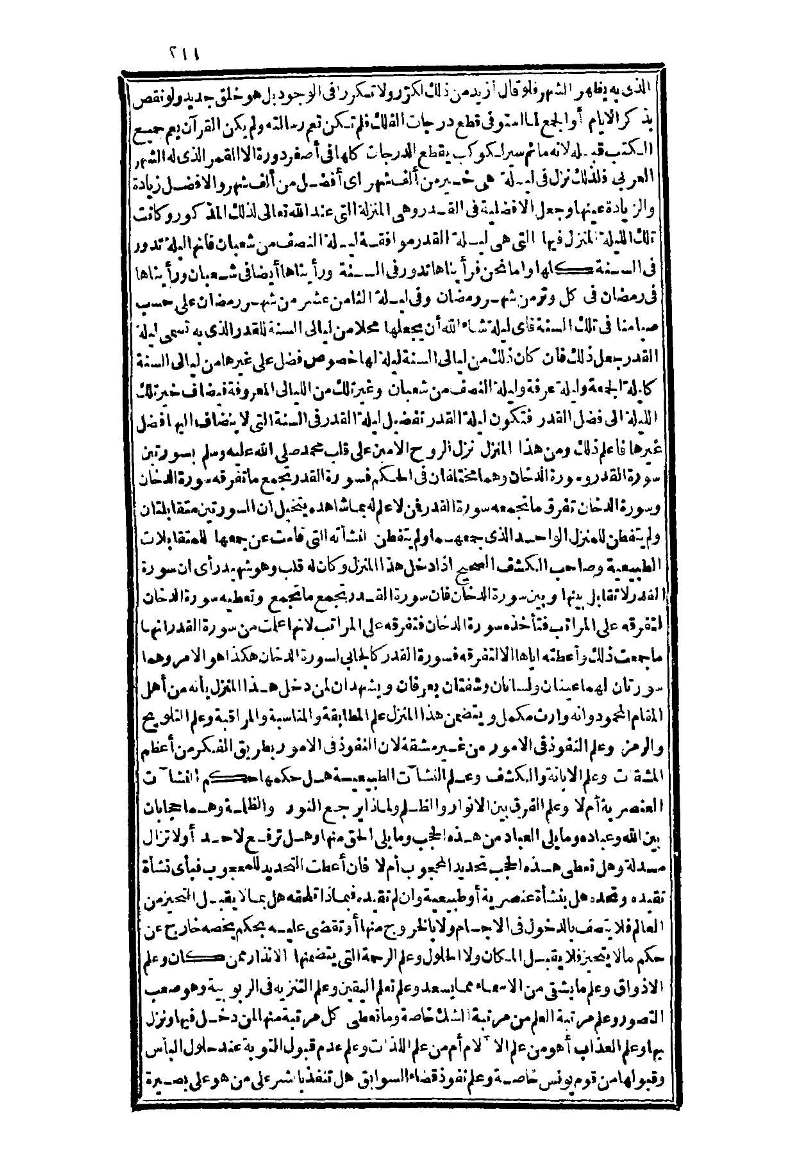 ٢١١
الذى به يظهر الشهر فلو قال أزيد من ذلك لكرر ولا تكرر فى الوجود بل هو خلق جديد ولو نقص
بذكر الايام أو الجمع لما استوفى قطع درجات الفلك فلم تكن تعم رسالته ولم يكن القرآن يعم جميع
الكتب قبله لانه ما ثم سير لكوكب يقطع الدرجات كلها فى أصغر دورة الا القمر الذى له الشهر
العربى فلذلك نزل فى ليلة هى خير من ألف شهر اى أفضل من ألف شهر والافضل زيادة
والزيادة عينها وجعل الافضلية فى القدر وهى المنزلة التى عند الله تعالى لذلك المذكور وكانت
تلك الليلة المنزل فيها التى هى ليلة القدر موافقة ليلة النصف من شعبان فانم اليلة تدور
فى السنة كلها واما نحن فرأيناها تدور فى السنة ورأيناها أيضا فى شعبان ورأيناها
فى رمضان فى كل وتر من شهر رمضان وفى ليلة الثامن عشر من شهر رمضان على حسب
صيامنا فى تلك السنة فاى ليلة شاء الله أن يجعلها محلا من ليالى السنة للقدر الذى به تسمى ليلة
القدر جعل ذلك فان كان ذلك من ليالى السنة ليلة لها خصوص فضل على غيرها من ليالى السنة
كليلة الجمعة وليلة عرفة وليلة النصف من شعبان وغير تلك من الليالى المعروفة فيضاف خير تلك
الليلة الى فضل القدر فتكون ليلة القدر تفضيل ليلة القدر فى السنة التى لا ينضاف اليها فضل
غيرها فاعلم ذلك ومن هذا المنزل نزل الروح الامين على قلب محمد صلى الله عليه وسلم بسورتين
سورة القدر وسورة الدخان وهما مختلفان فى الحكم فسورة القدر تجمع ما تفرقه سورة الدخان
وسورة الدخان تفرق ما تجمعه سورة القدر فمن لا علم له بما شاهده يتخيل ان السورتين متقابلتان
ولم يتفطن للمنزل الواحد الذى جمعهما ولم يتفطن لنشأته التى قامت عن جمعها للمتقابلات
الطبيعية وصاحب الكشف الصحيح اذا دخل هذا المنزل وكان له قلب وهو شهيد رأى ان سورة
القدر لا تقابل بينها وبين سورة الدخان فان سورة القدر تجمع ما تجمع وتعطيه سورة الدخان
لتفرقه على المراتب فتأخذه سورة الدخان فتفرقه على المراتب لانها علمت من سورة القدر انها
ما جمعت ذلك وأعطته اياها الا لتفرقه فسورة القدر كالجابى لسورة الدخان هكذا هو الامر وهما
سورتان لهما عينان ولسانان وشفتان يعرفان ويشهدان لمن دخل هذا المنزل بأنه من أهل
المقام المحمود وانه وارث مكمل ويتضمن هذا المنزل علم المطابقة والمناسبة والمراقبة وعلم التلويح
والرمز وعلم النفوذ فى الامور من غير مشقة لان النفوذ فى الامور بطريق الفكر من أعظم
المشقات وعلم الابانة والكشف وعلم النشآت الطبيعية هل حكمها حكم النشآت
العنصرية أم لا وعلم الفرق بين الانوار والظلم ولماذا يرجع النور والظلمة وهما حجابان
بين الله وعباده وما يلى العباد من هذه الحجب وما يلى الحق منها وهل ترفع لاحد أو لا تزال
مسدلة وهل تعطى هذه الحجب تحديد المحجوب أم لا فان أعطت التحديد للمحجوب فبأى نشأة
تقيده وتحدده هل بنشأة عنصرية أو طبيعية وان لم تقيده فبماذا تلحقه هل بما لا يقبل التحيز من
العالم فلا يتصف بالدخول فى الاجسام ولا بالخروج منها أو تقضى عليه بحكم يخصه خارج عن
حكم ما لا يتحيز فلا يقبل المكان ولا الحلول وعلم الرحمة التى يتضمنها الانذار ممن كان وعلم
الاذواق وعلم ما يشقى من الاسماء مما يسعد وعلم تعلم اليقين وعلم التنزيه فى الربوبية وهو صعب
التصور وعلم مرتبة العلم من مرتبة الشك خاصة وما تعطى كل مرتبة منها لمن دخل فيها ونزل
بها وعلم العذاب أهو من علم الآلام أم من علم اللذات وعلم عدم قبول التوبة عند حلول البأس
وقبولها من قوم يونس خاصة وعلم نفوذ قضاء السوابق هل تنفذ بالشر على من هو على بصيرة